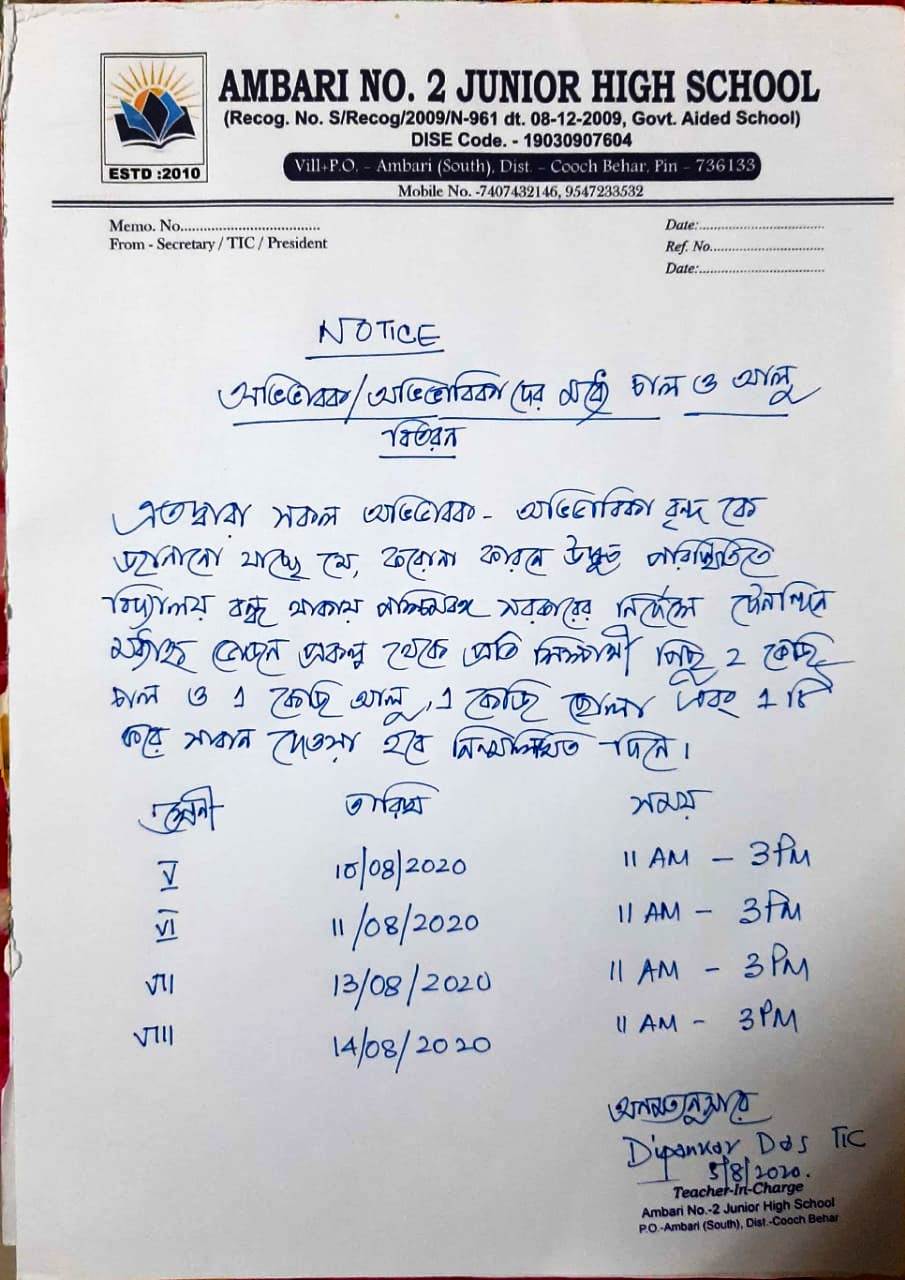 AMBARI NO. 2 JUNIOR HIGH SCHOOL
(Recog. No. S/Recog/2009/N-961 dt. 08-12-2009, Govt. Aided School)
DISE Code. - 19030907604
ESTD :2010
Vill+P.O. - Ambari (South), Dist. - Cooch Behar, Pin - 736133
Mobile No. -7407432146, 9547233532
Memo. No....................................
From - Secretary / TIC / President
Date:................................
Ref. No.............................
Date:................................
NOTICE
অভিভাবক/অভিভাবিকা দের মধ্যে চাল ও আলু
বিতরন
এতদ্বারা সকল অভিভাবক - অভিভাবিকা বৃন্দ কে
জানানো যাচ্ছে যে, করোনা কারনে উদ্ভুত পরিস্থিতিতে
বিদ্যালয় বন্ধ থাকায় পশ্চিমবঙ্গ সরকারের নির্দেশে দৈনন্দিন
মধ্যাহ্ন ভোজন প্রকল্প থেকে প্রতি শিক্ষার্থী পিছু 2 কেজি
চাল ও 1 কেজি আলু, 1 কেজি ছোলা এবং 1 টি
করে সাবান দেওয়া হবে নিন্মলিখিত দিনে।
শ্রেনী তারিখ সময়
V 10/08/2020 11 AM - 3 PM
VI 11/08/2020 11 AM - 3 PM
VII 13/08/2020 11 AM - 3 PM
VIII 14/08/2020 11 AM - 3 PM
Dipankar Das TIC
5/8/2020.
Teacher-In-Charge
Ambari No.-2 Junior High School
P.O.-Ambari (South), Dist.-Cooch Behar